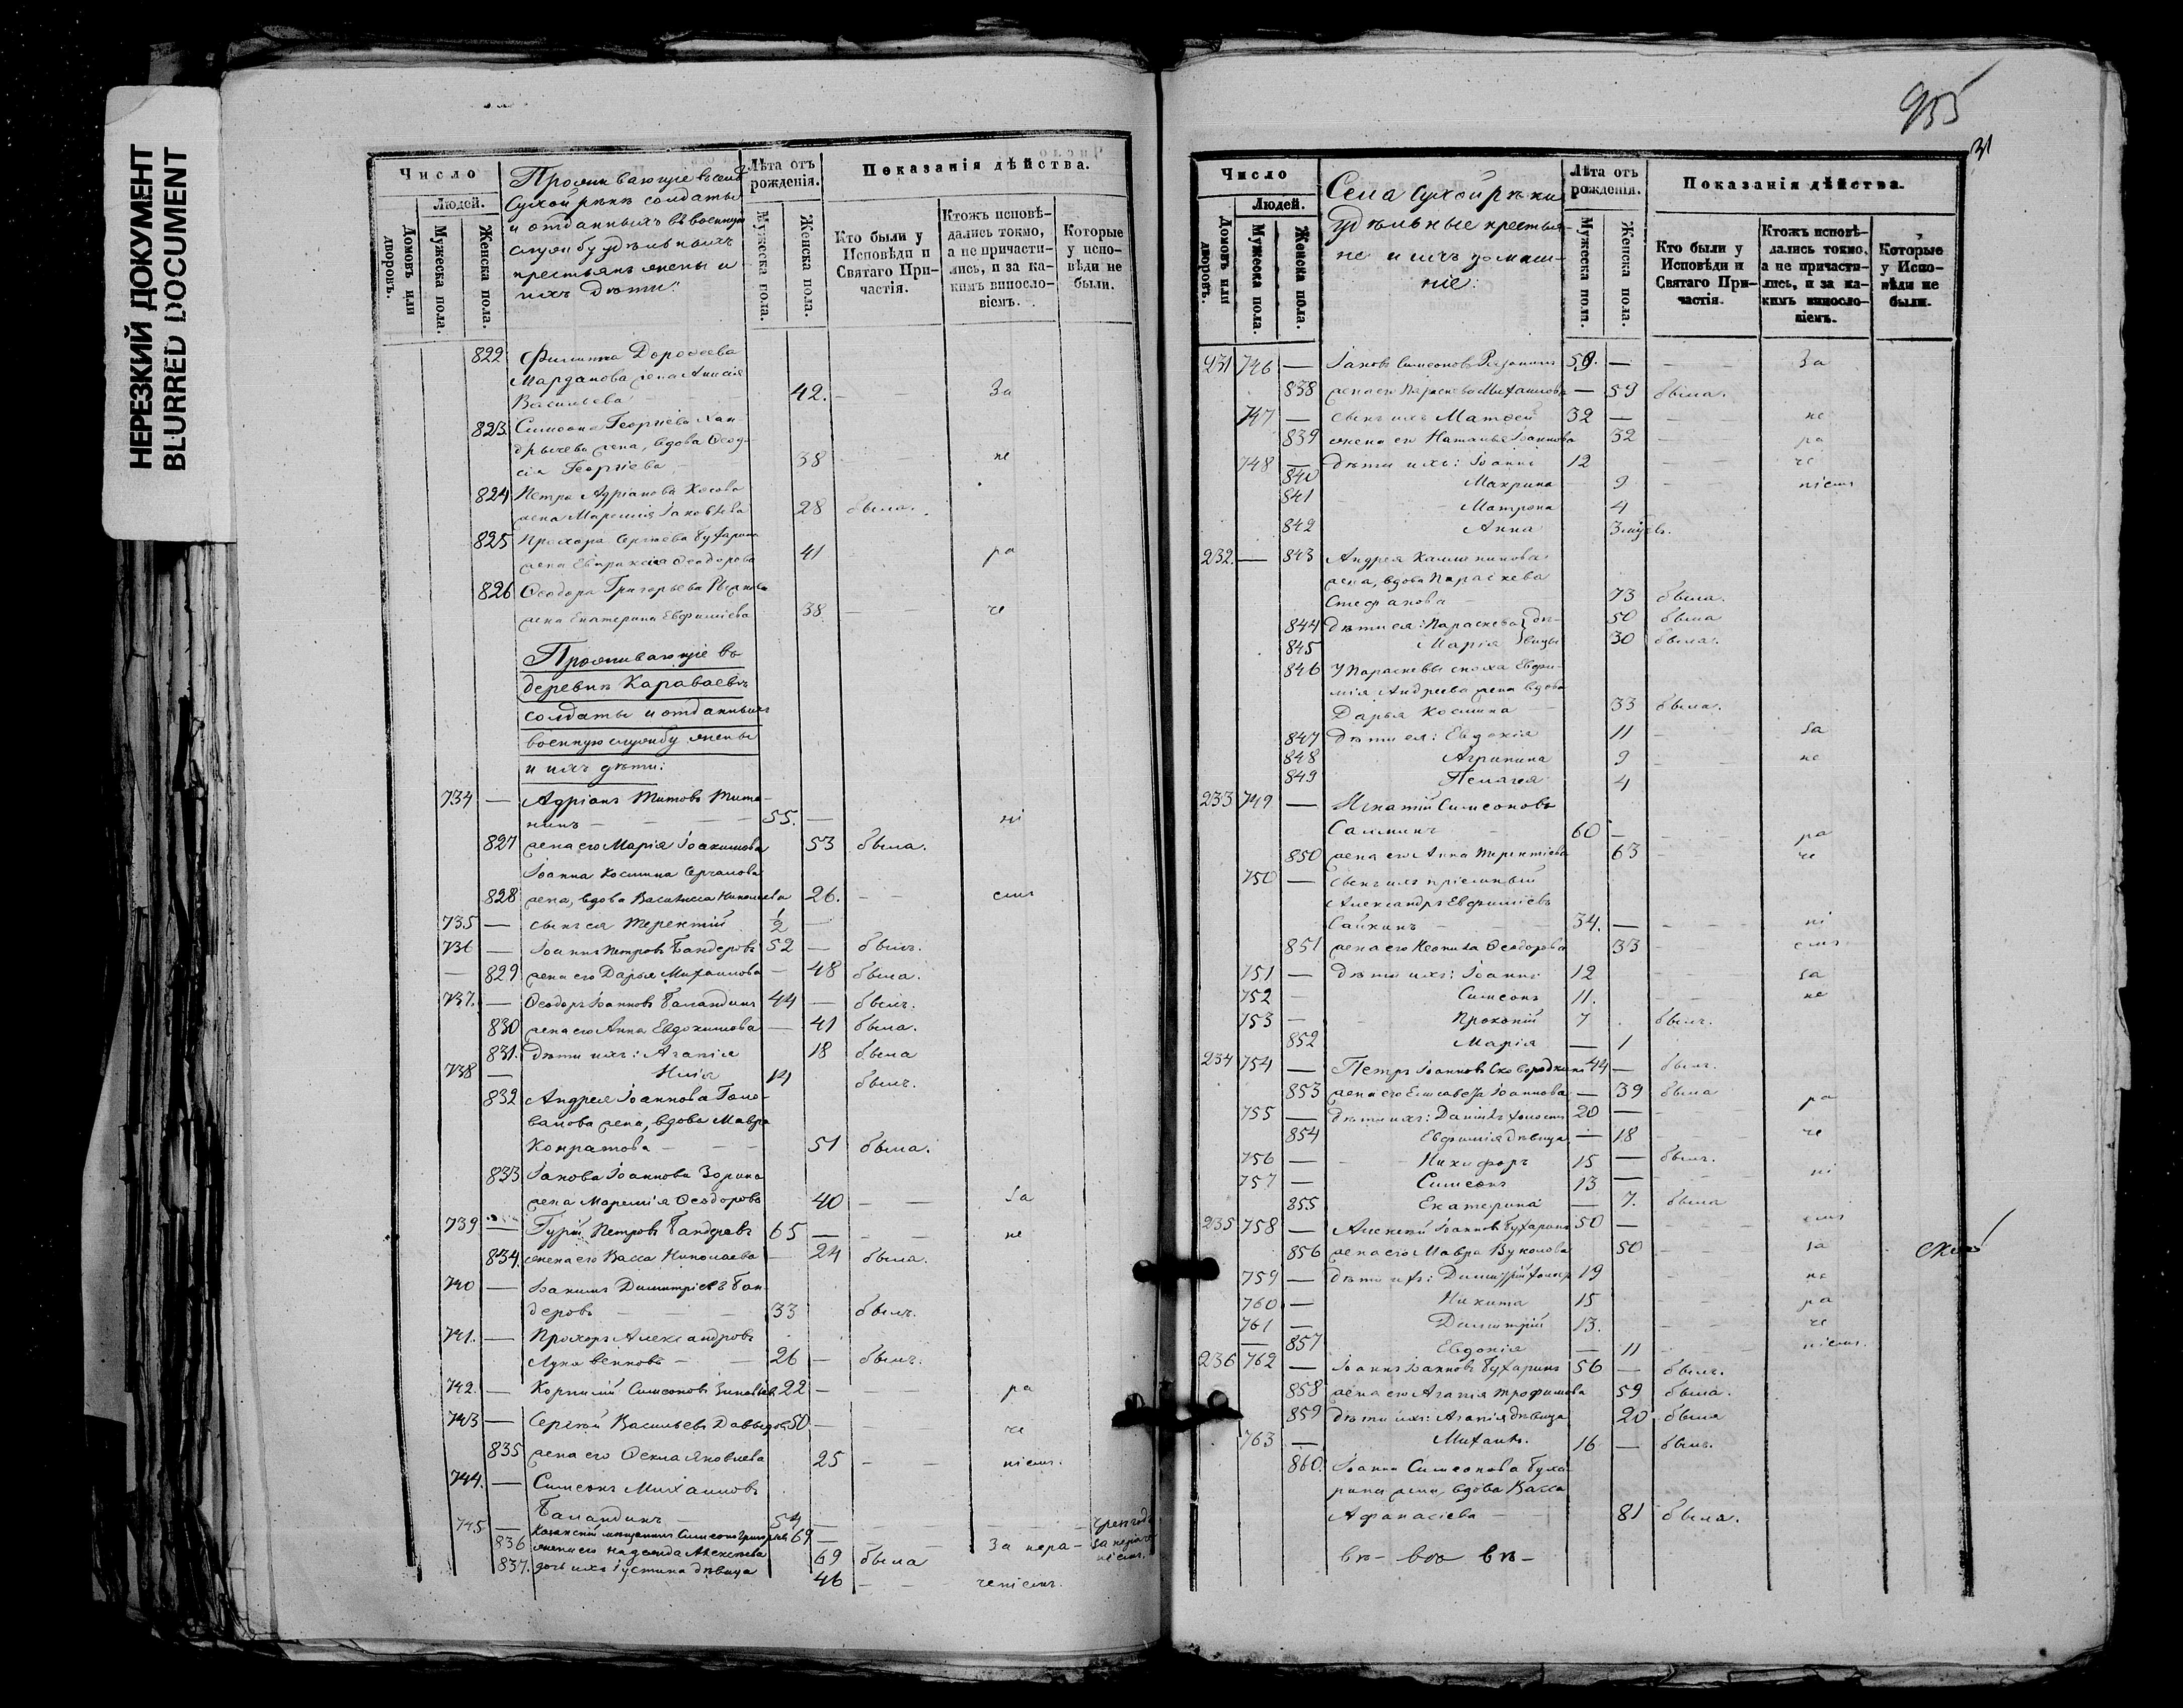 НЕРЕЗКИЙ ДОКУМЕНТ
BLURRED DOCUMENT
Число
Людей.
Домовъ или дворовъ.
Мужеска пола.
Женска пола.
Проживающіе въ селѣ
Сухой рѣкѣ солдаты
и отданныхъ въ военную
службу удѣльныхъ
крестьянъ жены и
ихъ дѣти:
Лѣта отъ рожденія.
Мужеска пола.
Женска пола.
Показанія дѣйства.
Кто были у Исповѣди и Святаго Причастія.
Ктожъ исповѣдались токмо, а не причастились, и за какимъ винословіемъ.
Которые у исповѣди не были.
822 Филиппа Дорофеева
Марданова жена
Васильева 42. За
823. Симеона Георгіева
жена, вдова Ѳеодосія Георгіева 38 не
824 Петра Адріанова Косова
жена Іаковлева 28 была.
825 Прохора Сергѣева Бухарина
жена Евпраксія Ѳеодорова 41 ра
826 Ѳеодора Григорьева
жена Екатерина Евфиміева 38 че
Проживающіе въ
деревнѣ Караваевѣ
солдаты и отданныхъ
военную службу жены
и ихъ дѣти:
734 — Адріанъ Титовъ
55. — ні
827 жена его Марія Іоакимова 53 была.
Іоанна Косьмина
828 жена, вдова Василисса Николаева 26. емъ
735 — сынъ ея Терентій 1/2 —
736 — Іоаннъ Петровъ Бандеровъ 52 — былъ.
— 829 жена его Дарья Михаилова — 48 была.
737. — Ѳеодоръ Іоанновъ Баландинъ 44 — былъ.
830 жена его Анна Евдокимова — 41 была.
831. дѣти ихъ: Агапія 18 была
738 — Илія 14 былъ.
832 Андрея Іоаннова
жена, вдова Мавра
Кондратова 51 была.
833 Іакова Іоаннова Зорина
жена Ѳеодорова 40 — — за
739 — Гурій Петровъ Бандеровъ 65 — — не
834. жена его Васса Николаева — 24 была.
740 — Димитріевъ Бандеровъ 33 былъ.
741. — Прохоръ Александровъ
26 — былъ.
742. — Корнилій Симеоновъ Зиновьевъ 22 — ра
743 — Сергѣй Васильевъ Давыдовъ 50 — че
835 жена его Ѳекла Яковлева 25 — — ніемъ.
744. — Симеонъ Михаиловъ
Баландинъ — 54 —
745. — Казанскій мѣщанинъ Симеонъ Григорьевъ 69 — За нера-
836 жена его Надежда Алексѣева 69 была
837. дочь ихъ Іустина дѣвица 46 — ченіемъ.
955
31
Число
Людей.
Домовъ или дворовъ.
Мужеска пола.
Женска пола.
Села Сухой рѣки
удѣльные крестья-
не и ихъ домаш-
ніе:
Лѣта отъ рожденія.
Мужеска пола.
Женска пола.
Показанія дѣйства.
Кто были у Исповѣди и Святаго Причастія.
Ктожъ исповѣдались токмо, а не причастились, и за какимъ винословіемъ.
Которые у Исповѣди не были.
231 746 — Іаковъ Симеоновъ 59. — За
838 жена его Параскева Михаилова — 59 была.
747 — сынъ ихъ Матѳей 32 — не
839 жена его Наталья Іоаннова 32 — ра
748 — дѣти ихъ: Іоаннъ 12 че
840 Макрина 9 ніемъ
841 Матрона 4
842 Анна 3 мѣс.
232. — 843 Андрея
жена, вдова Параскева
Стефанова 73 была.
844 дѣти ея: Параскева дѣ- 50 была
845 Марія вицы 30 была.
846 У Параскевы сноха Евфи-
мія Андреева жена вдова
Дарья Косьмина 33 была.
847 дѣти ея: Евдокія 11 за
848 Агрипина 9 не
849 Пелагея 4
233 749 — Игнатій Симеоновъ
Сайкинъ 60 — ра
850 жена его Анна Терентіева 63 че
750 — сынъ ихъ пріемный
Александръ Евфиміевъ
Сайкинъ 34. — ні
851 жена его Неонила Ѳеодорова 33 емъ
751 — дѣти ихъ: Іоаннъ 12 за
752 — Симеонъ 11. не
753 — Прокопій 7 былъ.
852 Марія — 1
234 754 — Петръ Іоанновъ Сковородкинъ 44 — былъ.
853 жена его Елисавета Іоаннова — 39 была
755 — дѣти ихъ: Даніилъ холостъ 20 — ра
854 Евфимія дѣвица — 18 че
756 — Никифоръ 15 — былъ.
757 — Симеонъ 13 — ні
855 Екатерина — 7. была
235 758 — Алексѣй Іоанновъ Бухаринъ 50 — емъ
856 жена его Мавра Вуколова 50 за
759 — дѣти ихъ: Димитрій холос. 19 не
760 — Никита 15 ра
761 — Димитрій 13. че
857 Евдокія — 11 ніемъ.
236 762 — Іоаннъ Іоанновъ Бухаринъ 56 — былъ.
858 жена его Агапія Трофимова 59 была.
859 дѣти ихъ: Агапія дѣвица 20 была
763 — Михаилъ. 16 — былъ.
860. Іоанна Симеонова Буха-
рина жена, вдова Васса
Аѳанасіева 81 была.